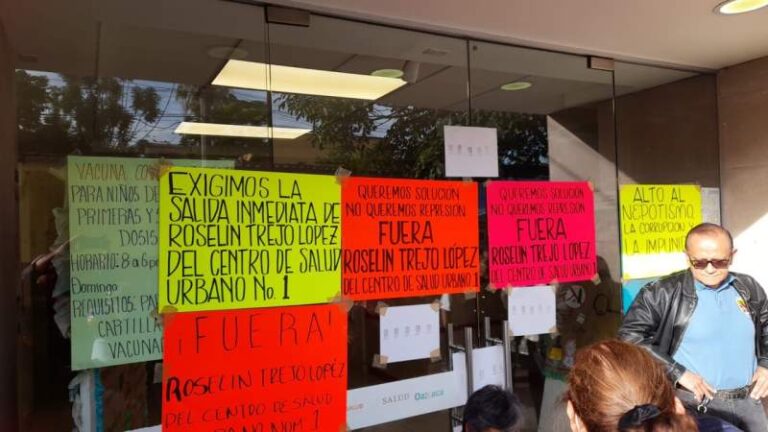 VACUNA
PARA NIÑOS DE
PRIMERAS Y
DOSIS
HORARIO: 8 a 6 p
Domingo
REQUISITOS:
CARTILLA
VACUNA
EXIGIMOS LA
SALIDA INMEDIATA DE
ROSELIN TREJO LOPEZ
DEL CENTRO DE SALUD
URBANO No. 1
QUEREMOS SOLUCIÓN
NO QUEREMOS REPRESIÓN
FUERA
ROSELIN TREJO LÓPEZ
DEL CENTRO DE SALUD URBANO 1
QUEREMOS SOLUCIÓN
NO QUEREMOS REPRESIÓN
FUERA
ROSELIN TREJO LÓPEZ
DEL CENTRO DE SALUD URBANO 1
ALTO AL
NEPOTISMO,
LA CORRUPCIÓN
Y LA IMPUNI
¡FUERA!
ROSELIN TREJO LOPÉZ
DEL CENTRO DE SALUD
URBANO NÚM. 1
SALUD